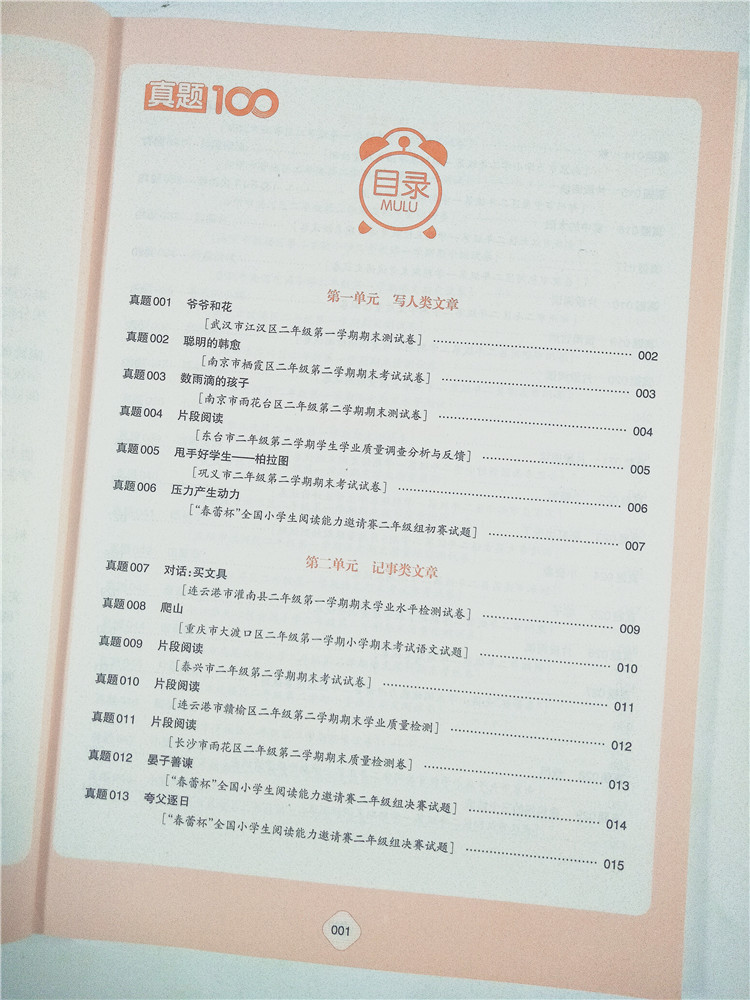 真题100
目录
MULU
第一单元 写人类文章
真题001 爷爷和花
[武汉市江汉区二年级第一学期期末测试卷] 002
真题002 聪明的韩愈
[南京市栖霞区二年级第二学期期末考试试卷] 003
真题003 数雨滴的孩子
[南京市雨花台区二年级第二学期期末测试卷] 004
真题004 片段阅读
[东台市二年级第二学期学生学业质量调查分析与反馈] 005
真题005 甩手好学生——柏拉图
[巩义市二年级第二学期期末考试试卷] 006
真题006 压力产生动力
[“春蕾杯”全国小学生阅读能力邀请赛二年级组初赛试题] 007
第二单元 记事类文章
真题007 对话:买文具
[连云港市灌南县二年级第一学期期末学业水平检测试卷] 009
真题008 爬山
[重庆市大渡口区二年级第一学期小学期末考试语文试题] 010
真题009 片段阅读
[泰兴市二年级第二学期期末考试试卷] 011
真题010 片段阅读
[连云港市赣榆区二年级第二学期期末学业质量检测] 012
真题011 片段阅读
[长沙市雨花区二年级第二学期期末质量检测卷] 013
真题012 晏子善谏
[“春蕾杯”全国小学生阅读能力邀请赛二年级组决赛试题] 014
真题013 夸父逐日
[“春蕾杯”全国小学生阅读能力邀请赛二年级组决赛试题] 015
001